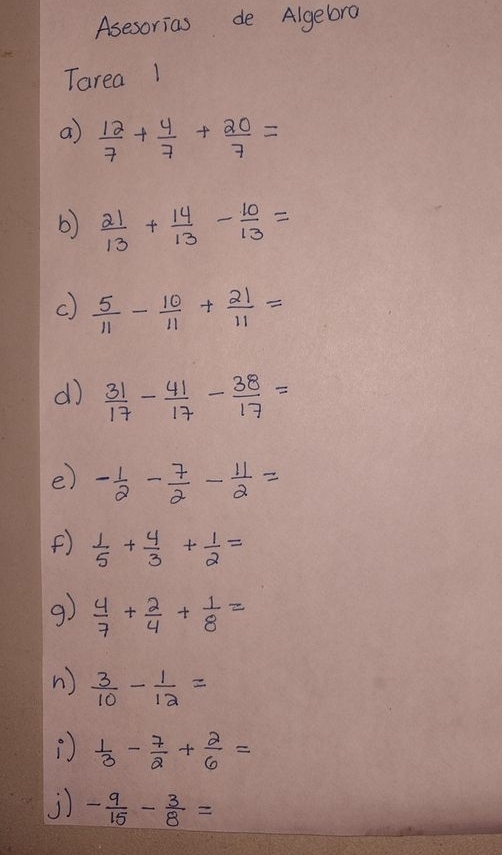 Asesorías de Algebra
Tarea 1
a) 12/7 + 4/7 + 20/7 =
b) 21/13 + 14/13 - 10/13 =
c) 5/11 - 10/11 + 21/11 =
d) 31/17 - 41/17 - 38/17 =
e) -1/2 - 7/2 - 11/2 =
f) 1/5 + 4/3 + 1/2 =
g) 4/7 + 2/4 + 1/8 =
h) 3/10 - 1/12 =
i) 1/3 - 7/2 + 2/6 =
j) -9/15 - 3/8 =